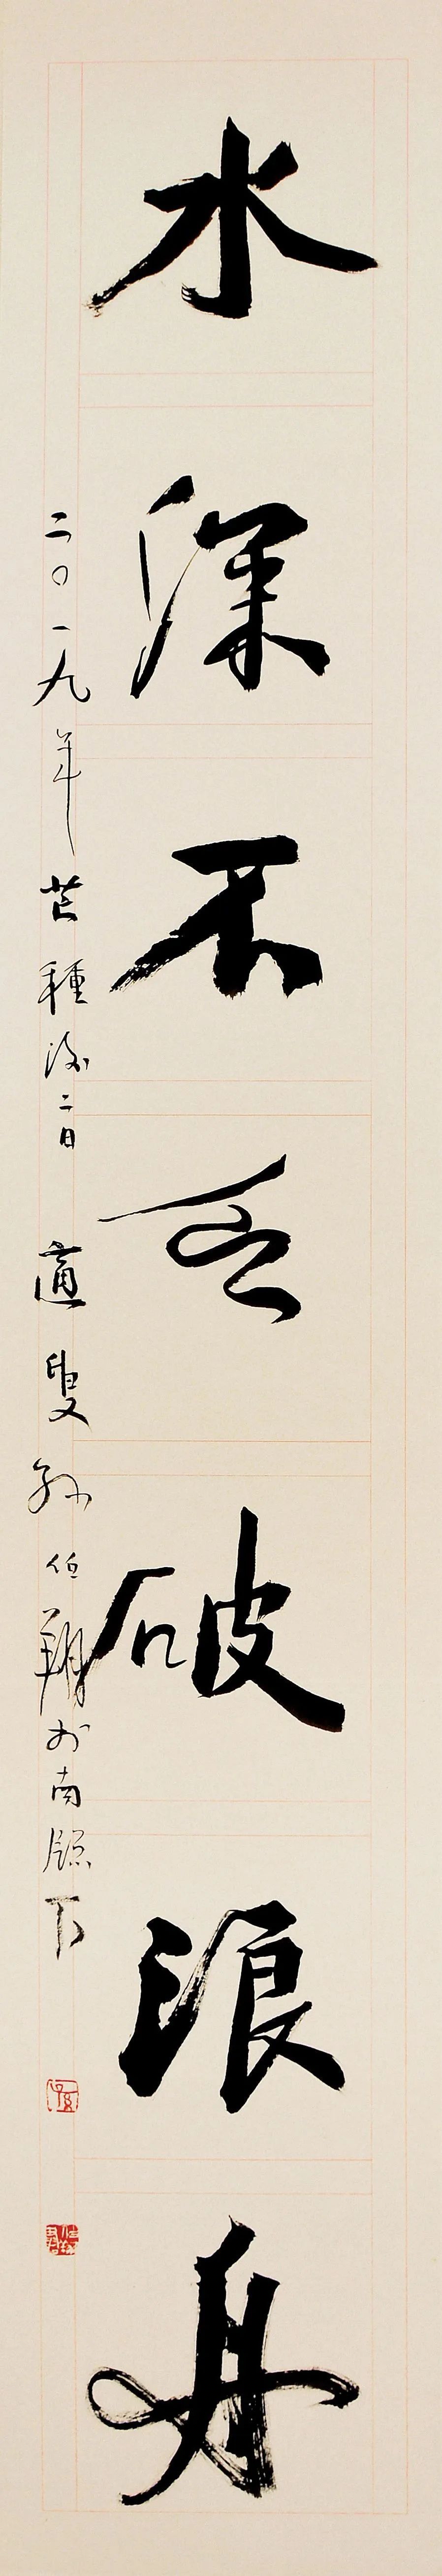 水深不乏破浪舟
二〇一九年芒種後二日 適叟孫伯翔於南牕下